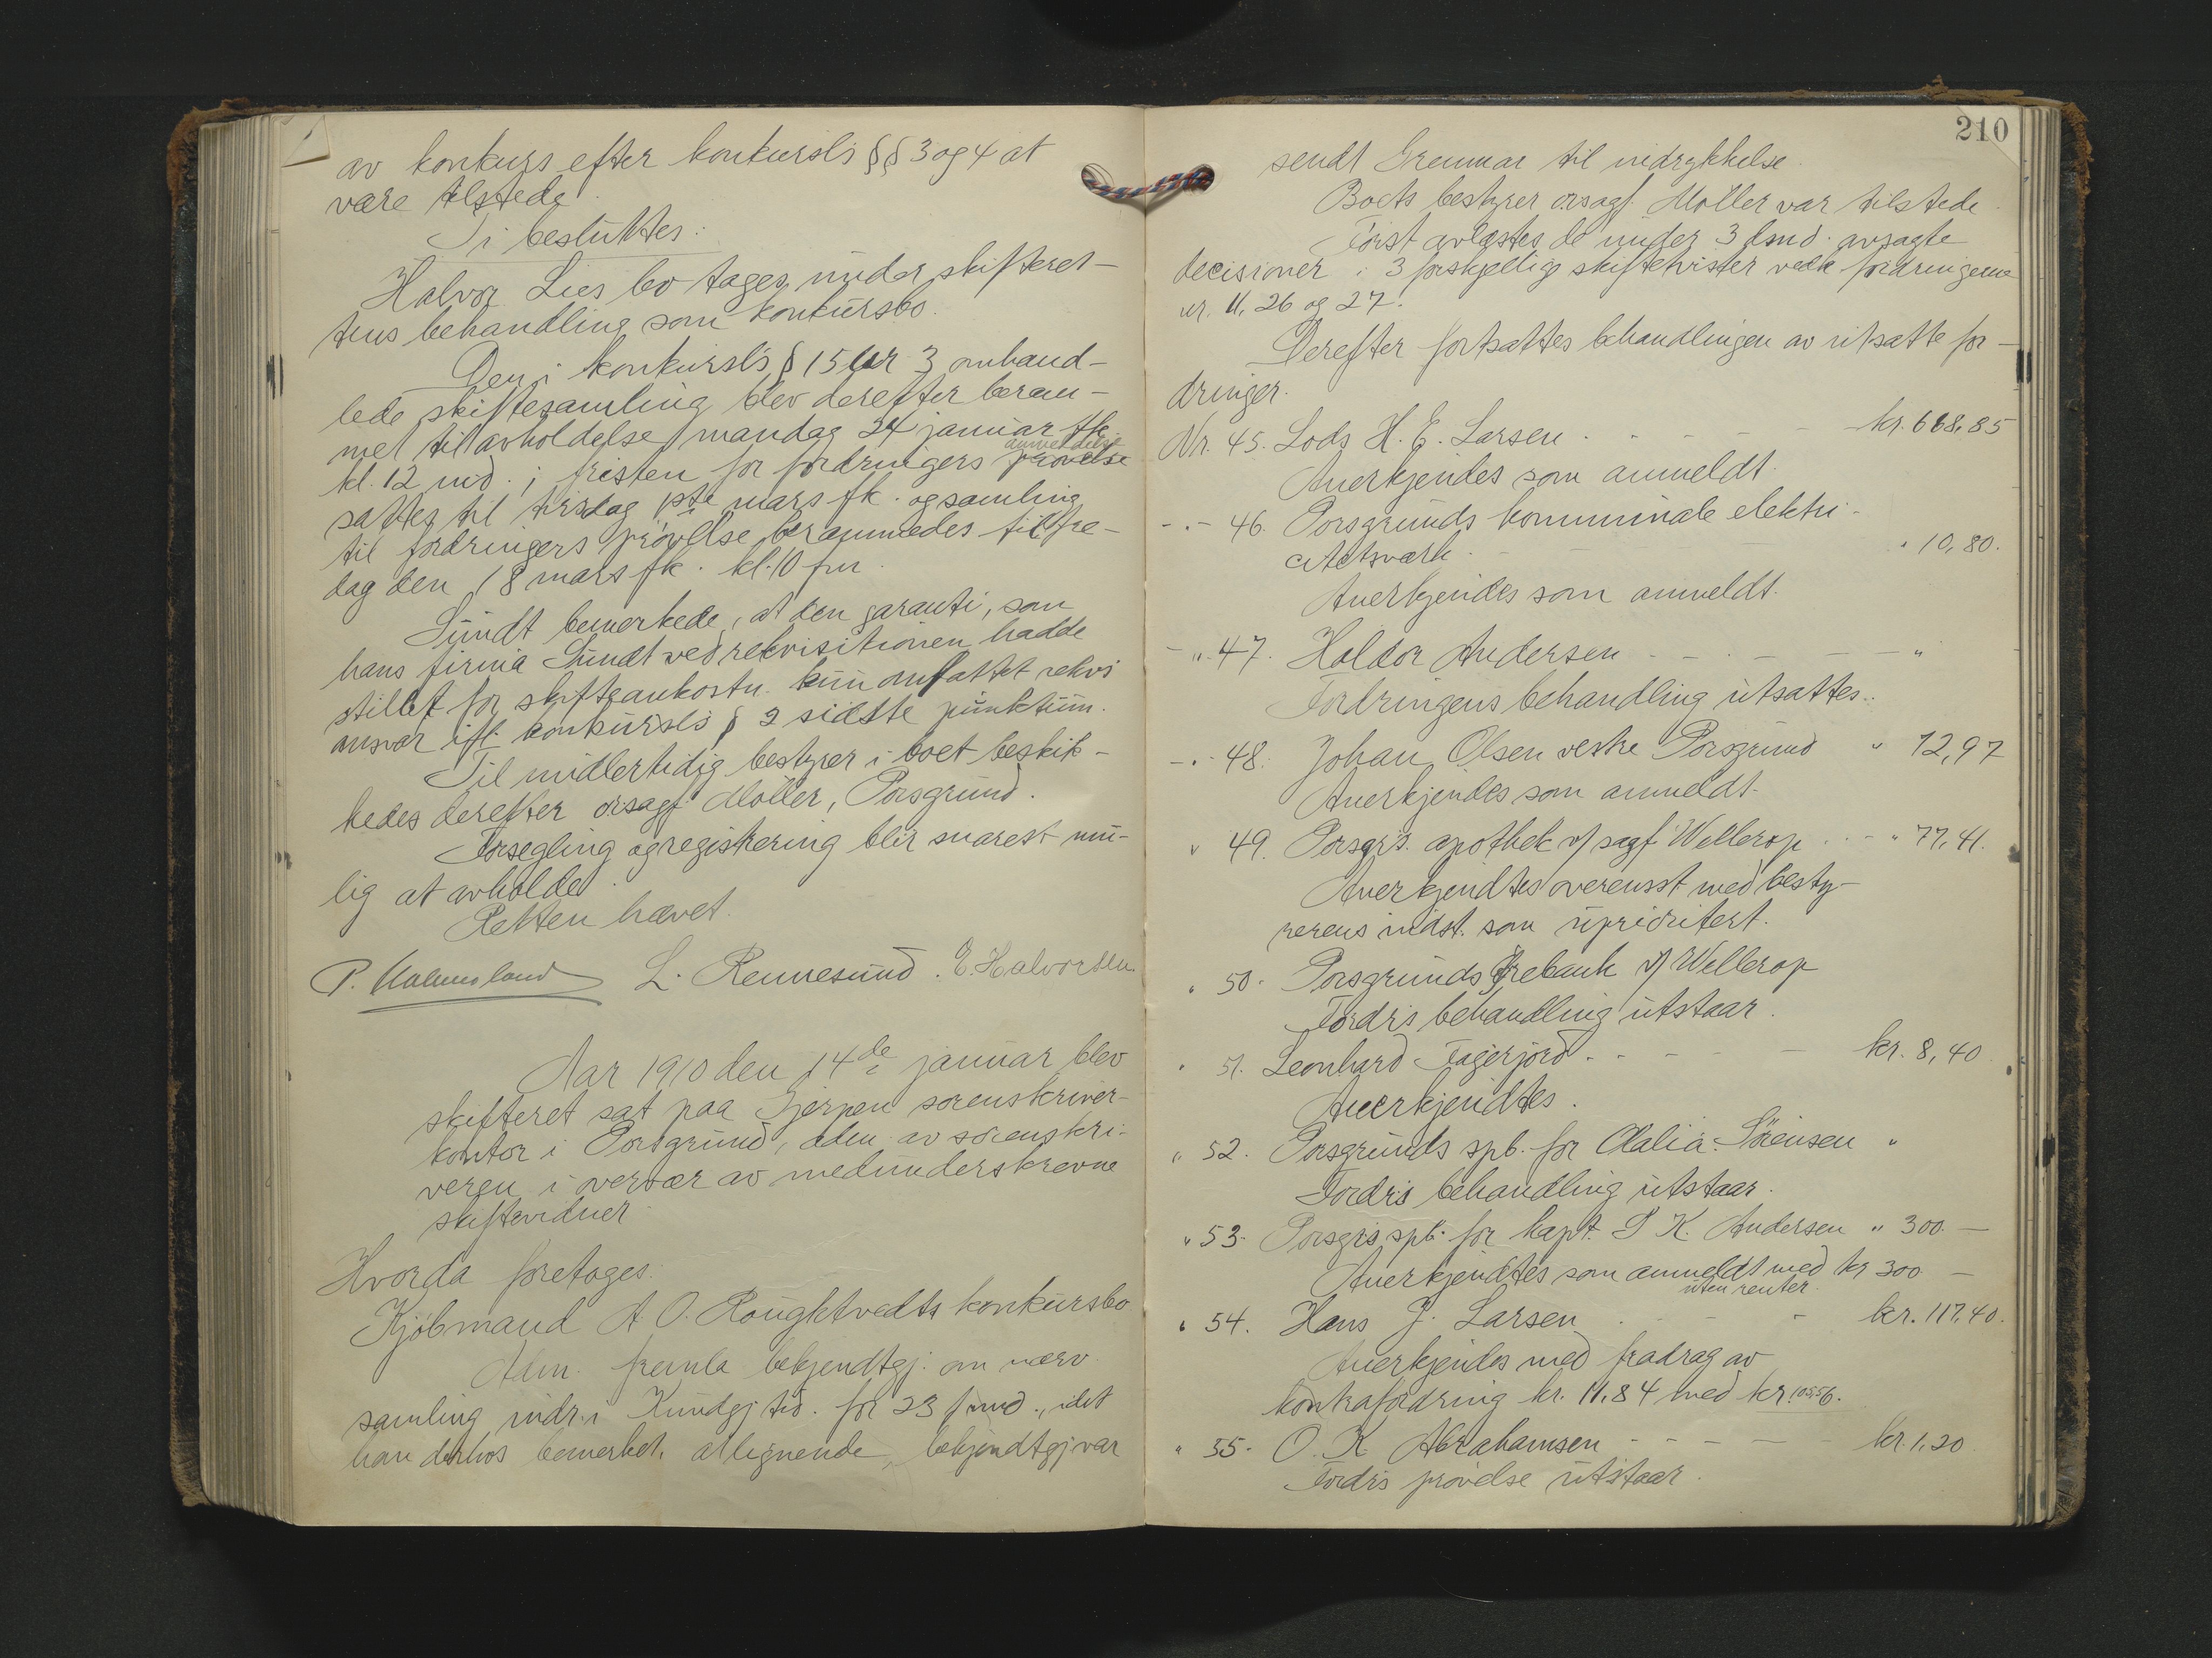 av konkurs efter konkursl's §§ 3 og 4 at
være tilstede.
Ti besluttes:
Halvor Lies bo tages under skifteret-
tens behandling som konkursbo.
Den i konkursl's § 15 nr 3 omhand-
lede skiftesamling blev derefter beram-
met til avholdelse mandag 24 januar fk
kl. 12 md. i fristen for fordringers prøvelse anmeldelse
sattes til tirsdag 1ste mars fk. og samling
til fordringers prøvelse berammedes til fre-
dag den 18 mars fk. kl. 10 fm.
Sundt bemerkede, at den garanti, som
hans firma Sundt ved rekvisitionen hadde
stillet for skifteomkostn. kun omfattet rekvs
ansvar ifl. konkursl's § 2 sidste punktum.
Til midlertidig bestyrer i boet beskik-
kedes derefter o.rsagf. Møller, Porsgrund.
Forsegling og registrering blir snarest mu-
lig at avholde.
Retten hævet.
P. Malmsland L. Rennesund. E. Halvorsen
Aar 1910 den 14de januar blev
skifteret sat paa Gjerpen sorenskriver-
kontor i Porsgrund, adm. av sorenskri-
veren i overvær av medunderskrevne
skiftevidner
Hvorda foretages:
Kjøbmand A. O. Rougktvedts konkursbo
Adm. fremla bekjendtgj. om nærv.
samling indr. i Kundgj tid. for 23 f md., idet
han derhos bemerket, at lignende bekjendtgj var
210
sendt Grenmar til indrykkelse.
Boets bestyrer orsagf. Møller var tilstede.
Først avlæstes de under 3 dsmd. avsagte
decisioner i 3 forskjellige skiftetvister vedk fordringerne
nr. 11, 26 og 27.
Derefter fortsattes behandlingen av utsatte for-
dringer.
Nr. 45. Lods H. E. Larsen . - - - - kr. 668,85
Anerkjendes som anmeldt.
-"- 46. Porsgrunds kommunale elektri-
citetsværk - - - " 10,80.
Anerkjendes som anmeldt.
-"- 47. Haldor Andersen - - - - "
Fordringens behandling utsattes.
-"- 48. Johan Olsen vestre Porsgrund " 12,97
Anerkjendes som anmeldt.
" 49. Porsgr's. apothek v/ sagf Wellerop . - " 77,41.
Anerkjendtes overensst med besty-
rerens indst. som uprioritert.
" 50. Porsgrunds Ørebank v/ Wellerop
Fordr's behandling utstaar.
" 51. Leonhard Fagerjord - - - kr. 8,40.
Anerkjendtes.
" 52. Porsgrunds spb. for Olalia Sørensen "
Fordr's behandling utstaar.
" 53. Porsgr's spb. for kapt. S K. Andersen " 300.—
Anerkjendtes som anmeldt med kr 300 —
uten renter.
" 54. Hans J. Larsen - - kr. 117,40.
Anerkjendes med fradrag av
kontrafordring kr. 11.84 med kr. 105,56.
" 55. O. K. Abrahamsen - - - - - kr. 1,20
Fordr's prøvelse utstaar.